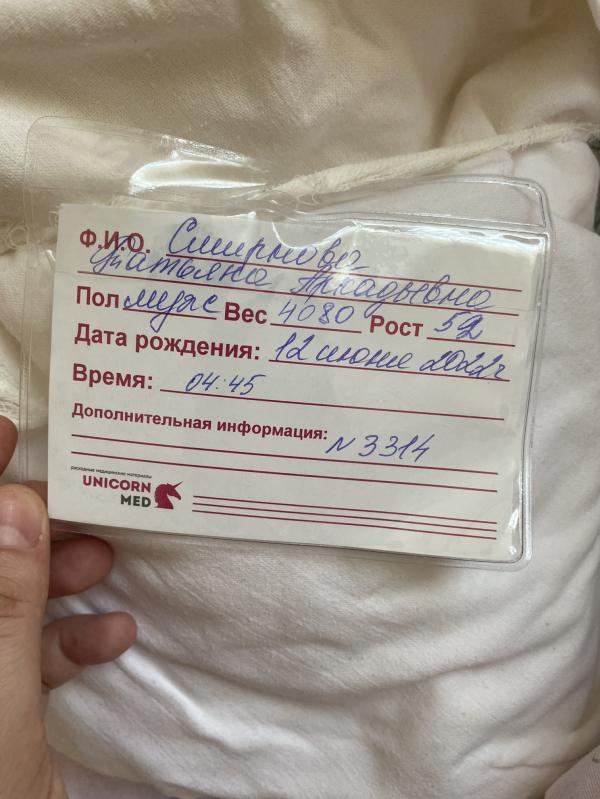 Ф.И.О. Смирнова
Татьяна Аркадьевна
Пол муж Вес 4080 Рост 52
Дата рождения: 12 июня 2022г
Время: 04:45
Дополнительная информация:
N 3314
расходные медицинские материалы
UNICORN
MED